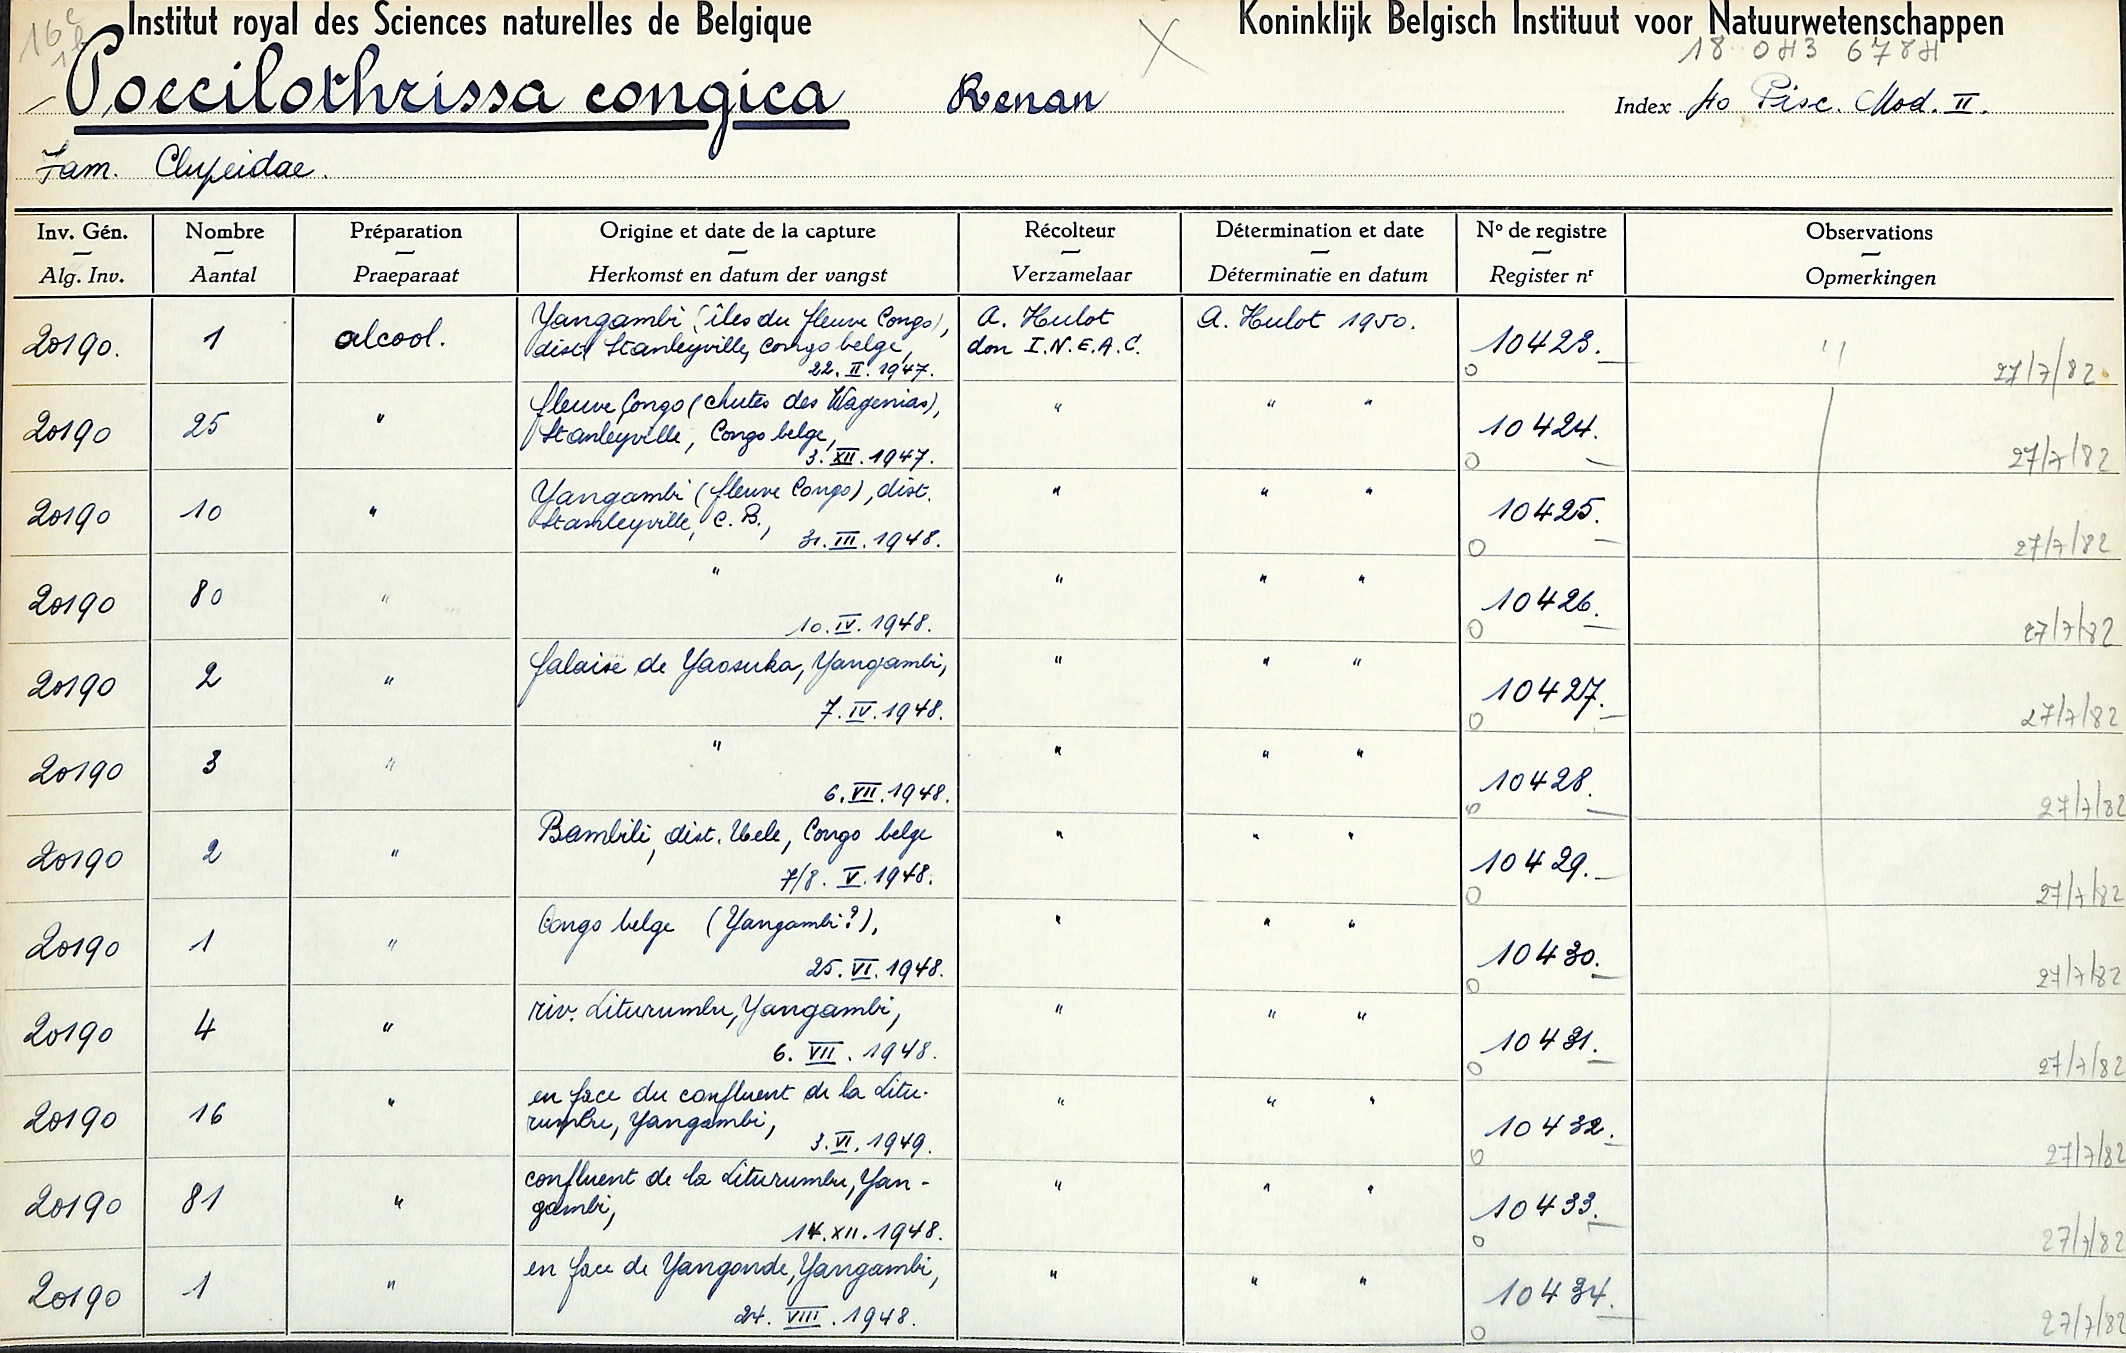 Institut royal des Sciences naturelles de Belgique Koninklijk Belgisch Instituut voor Natuurwetenschappen
16
Poecilothrissa congica Renan Index Ao Pisc. Mod. II.
Fam. Clupeidae.
Inv. Gén. Nombre Préparation Origine et date de la capture Récolteur Détermination et date No de registre Observations
Alg. Inv. Aantal Praeparaat Herkomst en datum der vangst Verzamelaar Déterminatie en datum Register nr Opmerkingen
20190. 1 alcool. Yangambi (îles du fleuve Congo), A. Hulot A. Hulot 1950. 10423. " 27/7/82
dist. Stanleyville, Congo belge, don I.N.E.A.C.
22. II. 1947.
20190 25 " fleuve Congo (chutes des Wagenias), " " " 10424. 27/7/82
Stanleyville, Congo belge,
3. XII. 1947.
20190 10 " Yangambi (fleuve Congo), dist. " " " 10425. 27/7/82
Stanleyville, C. B.,
31. III. 1948.
20190 80 " " " " " 10426. 27/7/82
10. IV. 1948.
20190 2 " falaise de Yaosuka, Yangambi, " " " 10427. 27/7/82
7. IV. 1948.
20190 3 " " " " " 10428. 27/7/82
6. VII. 1948.
20190 2 " Bambili, dist. Uele, Congo belge " " " 10429. 27/7/82
7/8. V. 1948.
20190 1 " Congo belge (Yangambi?), " " " 10430. 27/7/82
25. VI. 1948.
20190 4 " riv. Liturumbu, Yangambi, " " " 10431. 27/7/82
6. VII. 1948.
20190 16 " en face du confluent de la Litu- " " " 10432. 27/7/82
rumbu, Yangambi,
3. VI. 1949.
20190 81 " confluent de la Liturumbu, Yan- " " " 10433. 27/7/82
gambi,
14. XII. 1948.
20190 1 " en face de Yangonde, Yangambi, " " " 10434. 27/7/82
24. VIII. 1948.